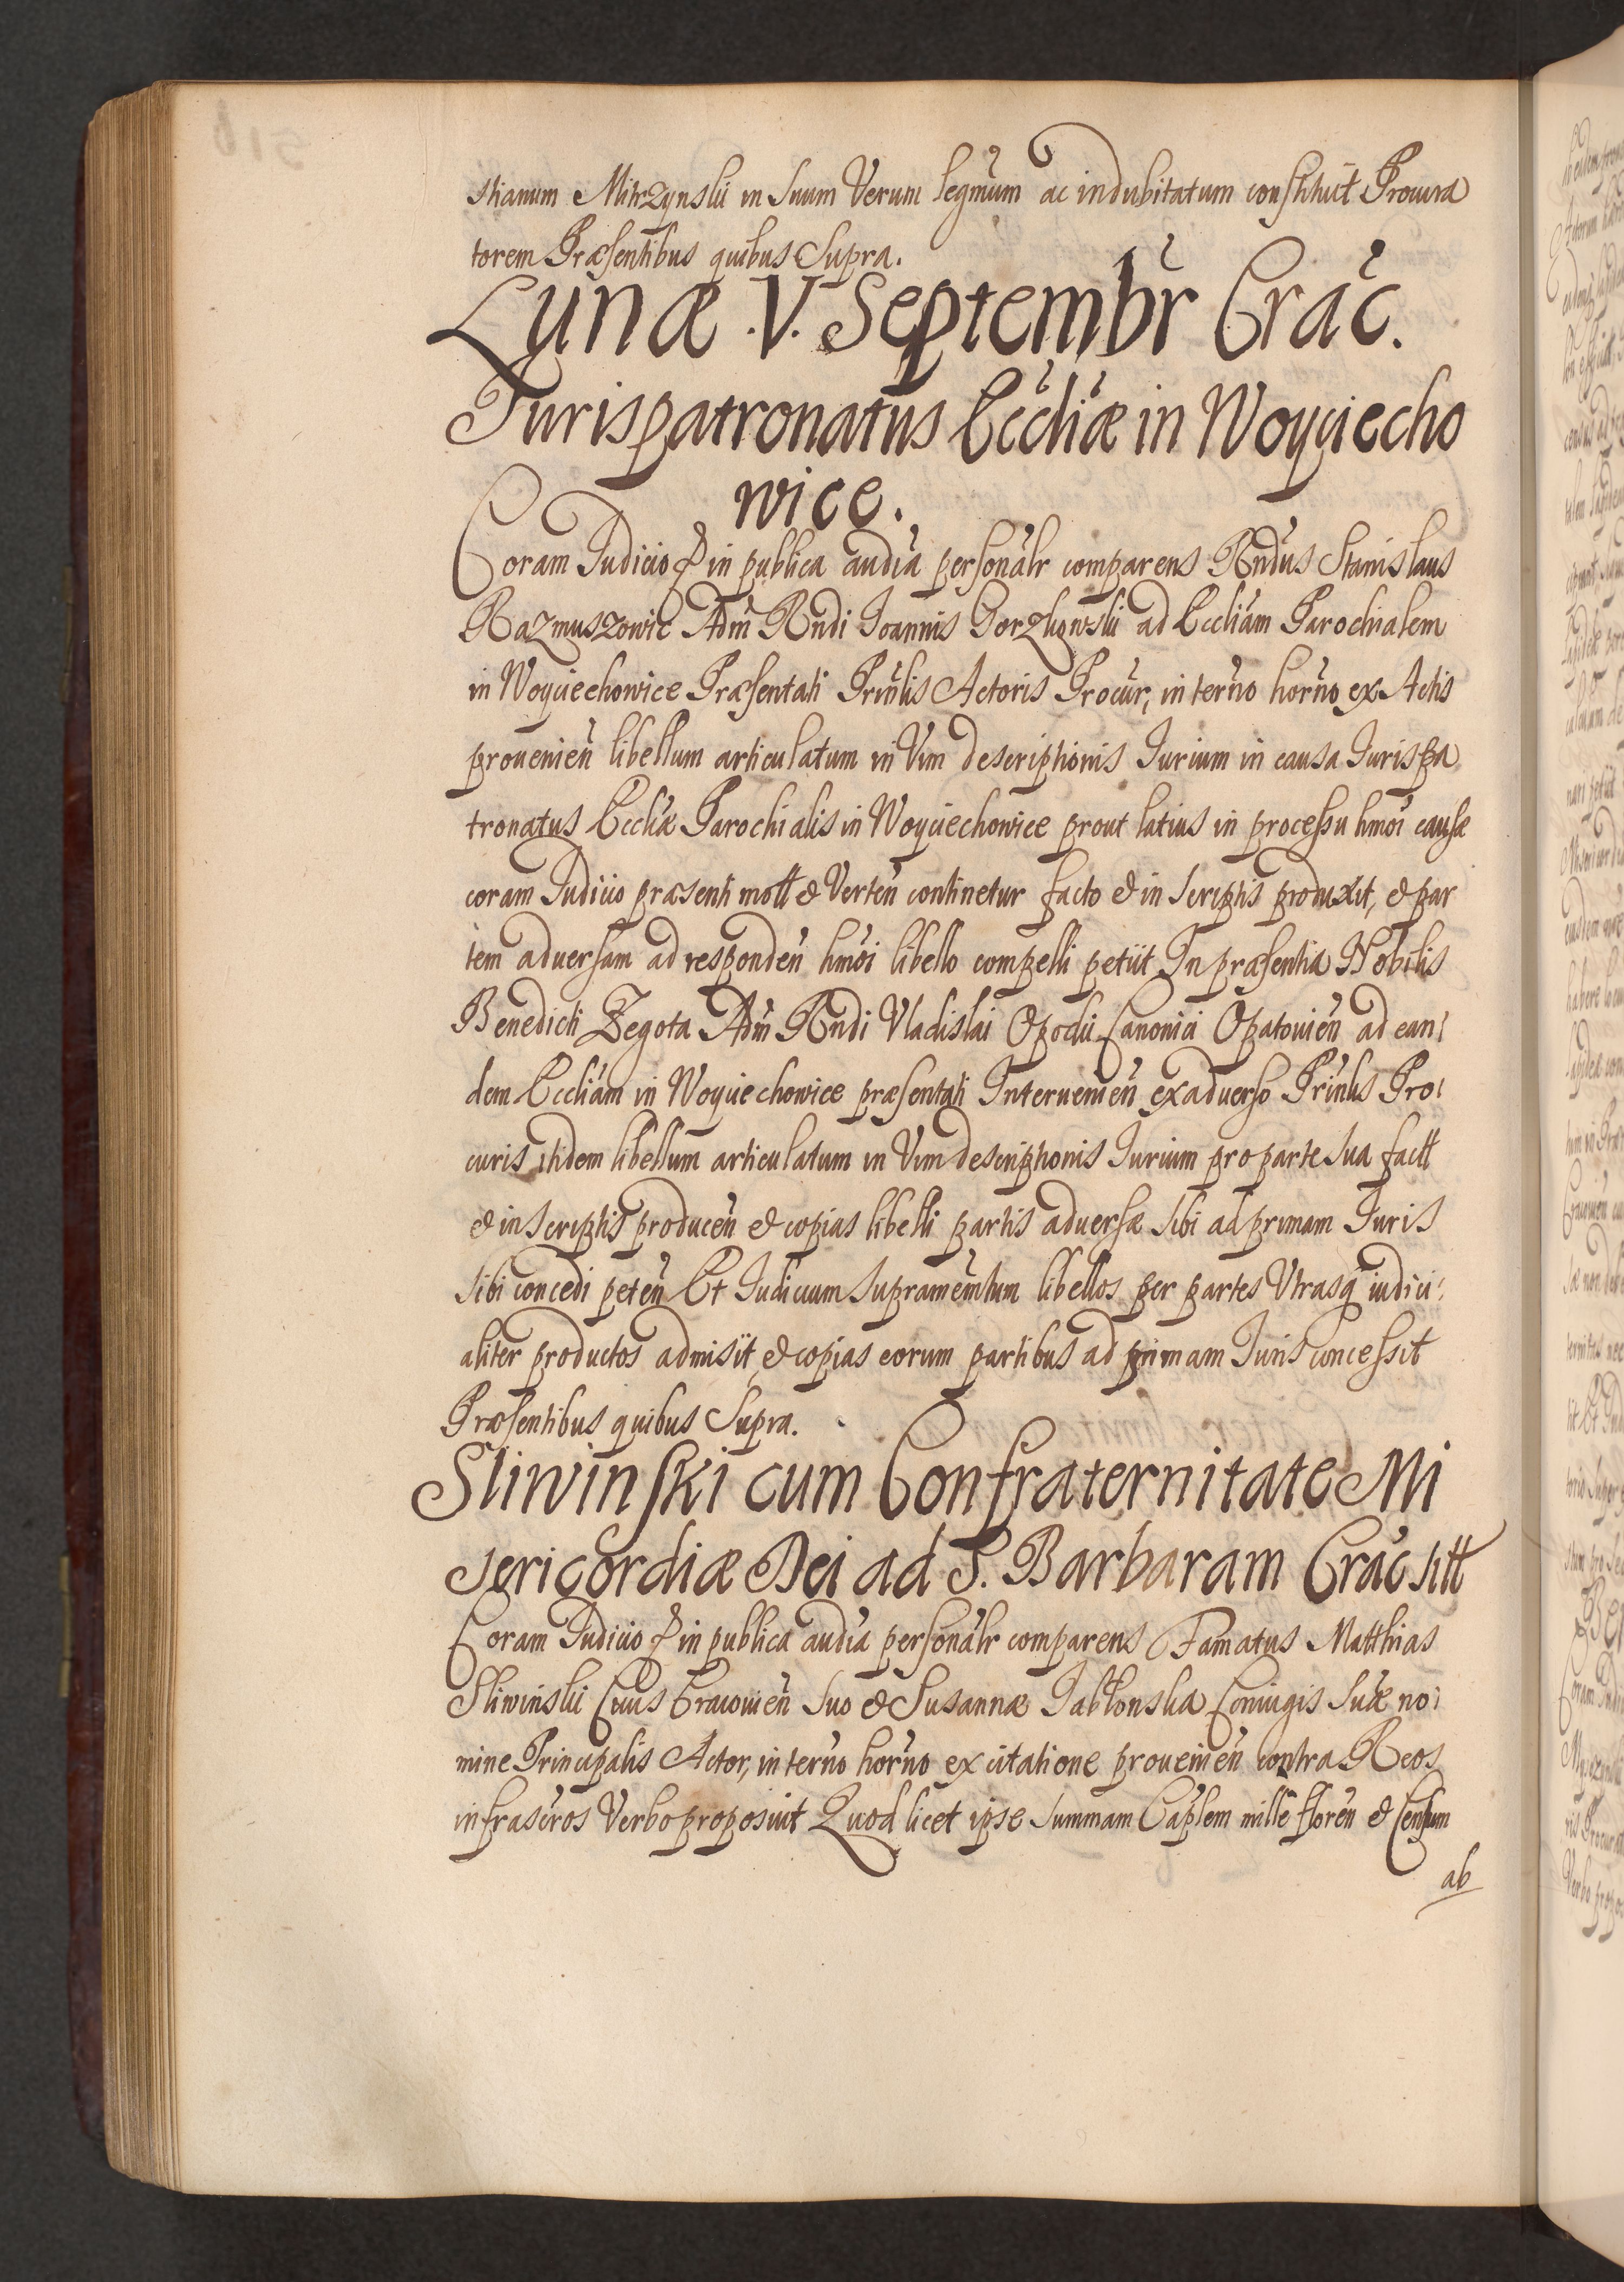 stianum Mitrzynski in Suum Verum legmum ac indubitatum constituit Procura
torem Præsentibus quibus Supra.
Lunæ .V. Septembr Crac.
Jurispatronatus Eccliæ in Woyciecho
wice.
Coram Judicio & in publica audia personalr comparens Rndus Stanislaus
Razmuszowic Adm Rndi Joannis Gorzkowski ad Eccliam Parochialem
in Woyciechowice Præsentati Prinlis Actoris Procur, in terno horno ex Actis
prouenien libellum articulatum in Vim descriptionis Jurium in causa Jurispa
tronatus Eccliæ Parochialis in Woyciechowice prout latius in processu hmoi causæ
coram Judicio præsenti mott & Verten continetur facto & in scriptis produxit, & par
tem aduersam ad responden hmoi libello compelli petiit In præsentia Nobilis
Benedicti Zegota Adm Rndi Vladislai Opocki Canonici Opatouien ad ean:
dem Eccliam in Woyciechowice præsentati Interuenien ex aduerso Prinlis Pro:
curis itidem libellum articulatum in Vim descriptionis Jurium pro parte sua factt
& in scriptis producen & copias libelli partis aduersæ sibi ad primam Juris
sibi concedi peten Et Judicium supramemtum libellos per partes Vtrasq iudici:
aliter productos admisit, & copias eorum partibus ad primam Juris concessit
Præsentibus quibus Supra.
Sliwinski cum Confraternitate Mi
sericordiæ Dei ad S. Barbaram Crac sitt
Coram Judicio & in publica audia personalr comparens Famatus Matthias
Sliwinski Ciuis Cracouien suo & Susannæ Jabłonska Coniugis suæ no:
mine Principalis Actor, in terno horno ex citatione prouenien contra Reos
infrascros Verbo proposuit Quod licet ipse summam Caplem mille floren & Censum
ab